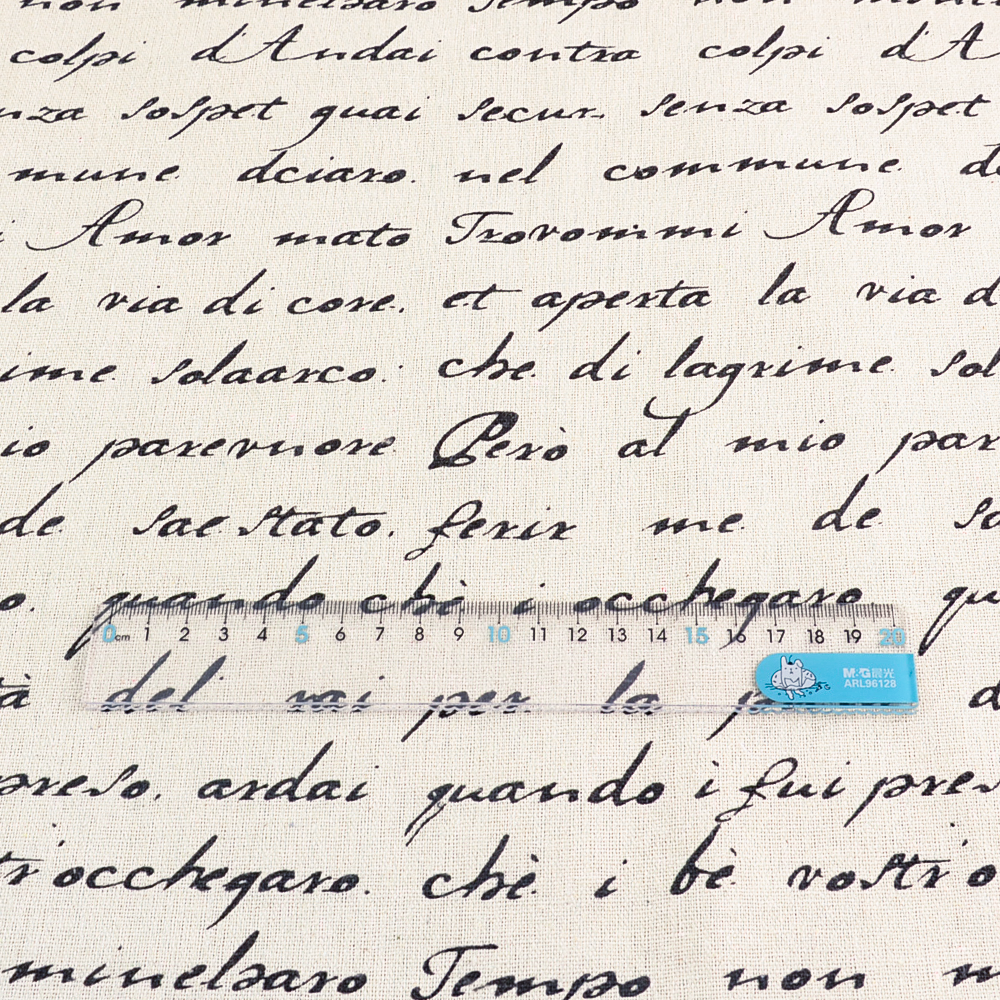 non minelsaro Tempo non
colpi d'Andai contra colpi d'A
nza sospet guai secur. senza sospet
mune dciaro. nel commune d
i Amor mato Trovommi Amor
la via di core. et aperta la via d
ime solaarco: che di lagrime sol
io parevnore Però al mio par
de saestato. ferir me de sa
o. quando chè i occhegaro qu
0cm 1 2 3 4 5 6 7 8 9 10 11 12 13 14 15 16 17 18 19 20
à del vai per la p d
M&G晨光
ARL96128
preso. ardai quando i fui pres
tr'occhegaro. chè i bè vostr o
minelsaro Tempo non m